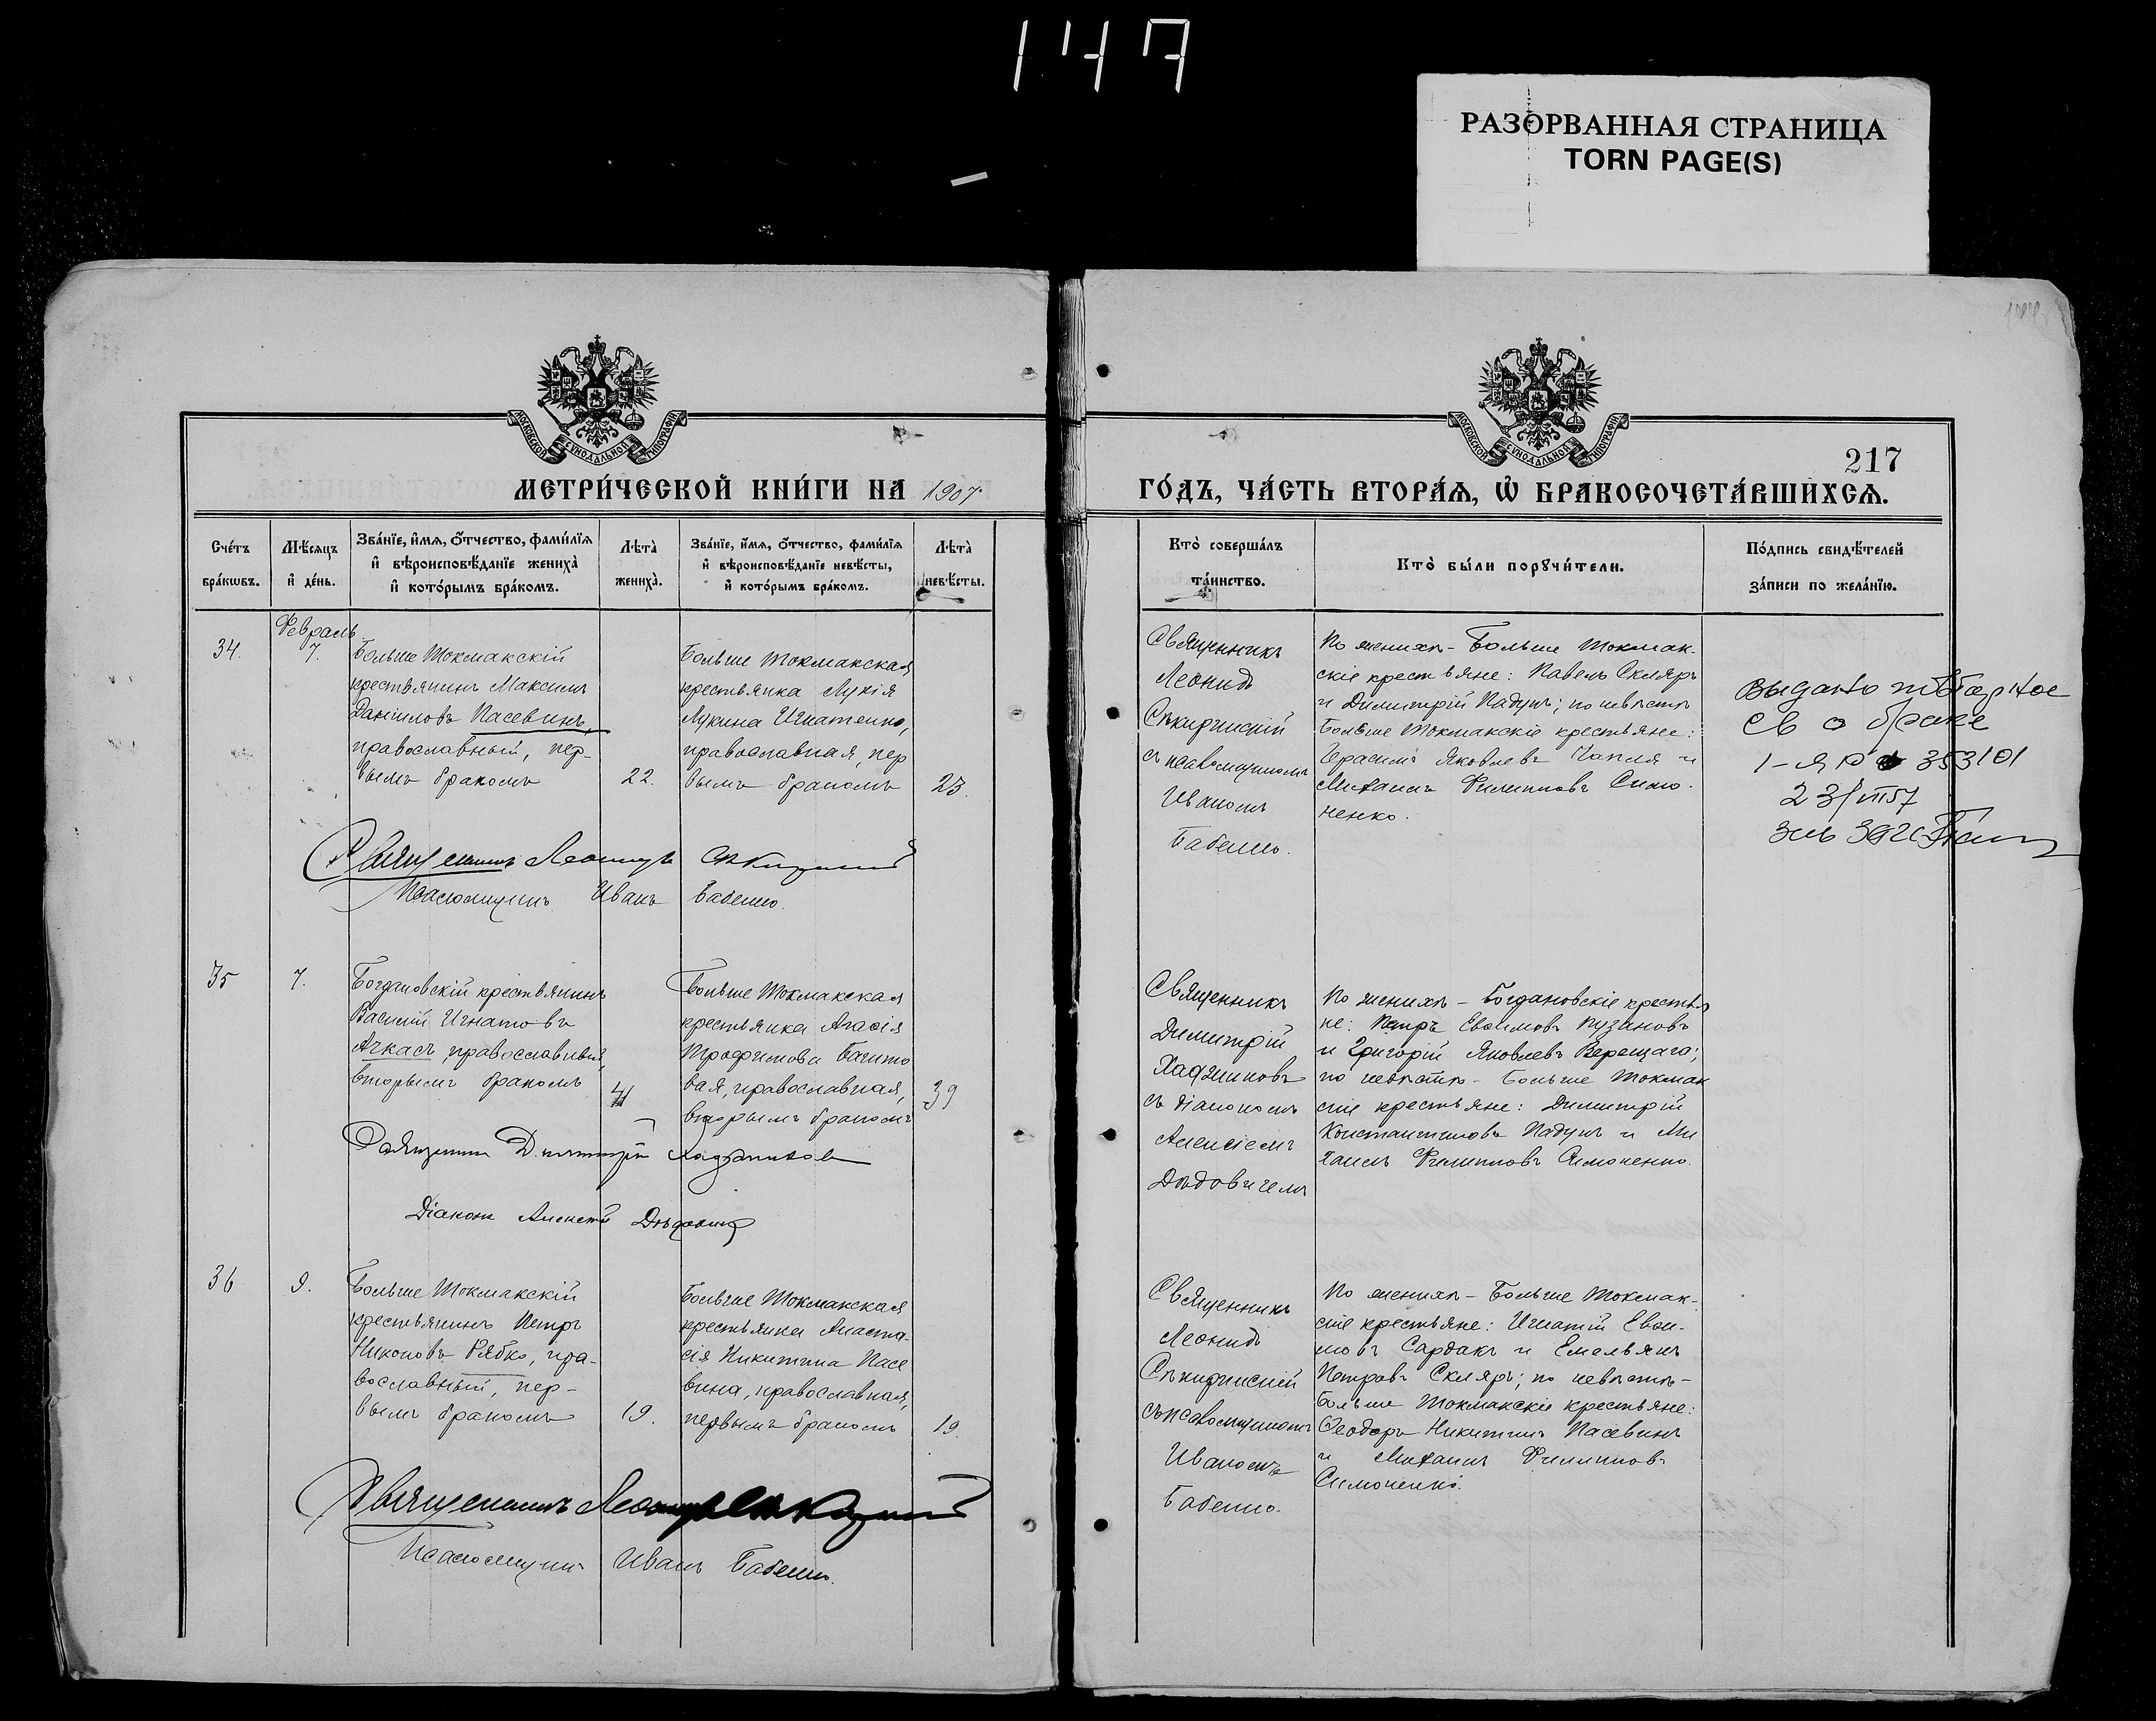 147
РАЗОРВАННАЯ СТРАНИЦА
TORN PAGE(S)
МОСКОВСКОЙ СѴНОДАЛЬНОЙ ТИПОГРАФІИ
МОСКОВСКОЙ СѴНОДАЛЬНОЙ ТИПОГРАФІИ
217
МЕТРИ́ЧЕСКОЙ КНИ́ГИ НА 1907
ГО́ДЪ, ЧА́СТЬ ВТОРА́Ѧ, Ѡ҆ БРАКОСОЧЕТА́ВШИХСѦ.
Счéтъ бра́кѡвъ.
Мѣ́сяцъ и҆ де́нь.
Зва́нїе, и҆́мя, о҆́тчество, фами́лїя
и҆ вѣроисповѣ́данїе жениха̀
и҆ кото́рымъ бра́комъ.
Лѣта̀ жениха̀.
Зва́нїе, и҆́мя, о҆́тчество, фами́лїя
и҆ вѣроисповѣ́данїе невѣ́сты,
и҆ кото́рымъ бра́комъ.
Лѣта̀ невѣ́сты.
Кто̀ соверша́лъ
та́инство.
Кто̀ бы́ли порꙋчи́тели.
По́дпись свидѣ́телей
за́писи по жела́нїю.
Февраль
34.
7.
Больше Токмакскій
крестьянинъ Максимъ
Даніиловъ Пасевинъ,
православный, пер-
вымъ бракомъ
22.
Больше Токмакская
крестьянка Лукія
Лукина Игнатенко,
православная, пер
вымъ бракомъ
23.
Священникъ
Леонидъ
Сѣкиринскій
съ псаломщикомъ
Иваномъ
Бабенко.
По женихѣ - Больше Токмак-
скіе крестьяне: Павелъ Скляръ
и Димитрій Падунъ; по невѣстѣ
Больше Токмакскіе крестьяне:
Герасимъ Яковлевъ Чапля и
Михаилъ Филипповъ Симо-
ненко.
Выдано повторное
св о браке
1-ЯР 353101
23/VII 57
Священникъ Леонидъ Сѣкиринскій
Псаломщикъ Иванъ Бабенко.
35
7.
Богдановскій крестьянинъ
Василій Игнатовъ
Ачкасъ, православный,
вторымъ бракомъ
41
Больше Токмакская
крестьянка Агафія
Трофимова Багмто
вая, православная,
вторымъ бракомъ
39
Священникъ
Димитрій
Хаджиновъ
съ діакономъ
Алексіемъ
Дѣдовичемъ
По женихѣ - Богдановскіе крестья
не: Петръ Евфимовъ Пузановъ
и Григорій Яковлевъ Верещага;
по невѣстѣ - Больше Токмак
скіе крестьяне: Димитрій
Константиновъ Падунъ и Ми
хаилъ Филипповъ Симоненко.
Священникъ Димитрій Хаджиновъ
Діаконъ Алексій Дѣдовичъ
36
9.
Больше Токмакскій
крестьянинъ Петръ
Никоновъ Рябко, пра-
вославный, пер-
вымъ бракомъ
19.
Больше Токмакская
крестьянка Анаста-
сія Никитина Пасе
вина, православная,
первымъ бракомъ
19.
Священникъ
Леонидъ
Сѣкиринскій
съ псаломщикомъ
Иваномъ
Бабенко.
По женихѣ - Больше Токмак-
скіе крестьяне: Игнатій Евфи-
мовъ Сардакъ и Емельянъ
Петровъ Скляръ; по невѣстѣ -
Больше Токмакскіе крестьяне:
Ѳеодоръ Никитинъ Пасевинъ
и Михаилъ Филипповъ
Симоненко.
Священникъ Леонидъ Сѣкиринскій
Псаломщикъ Иванъ Бабенко.